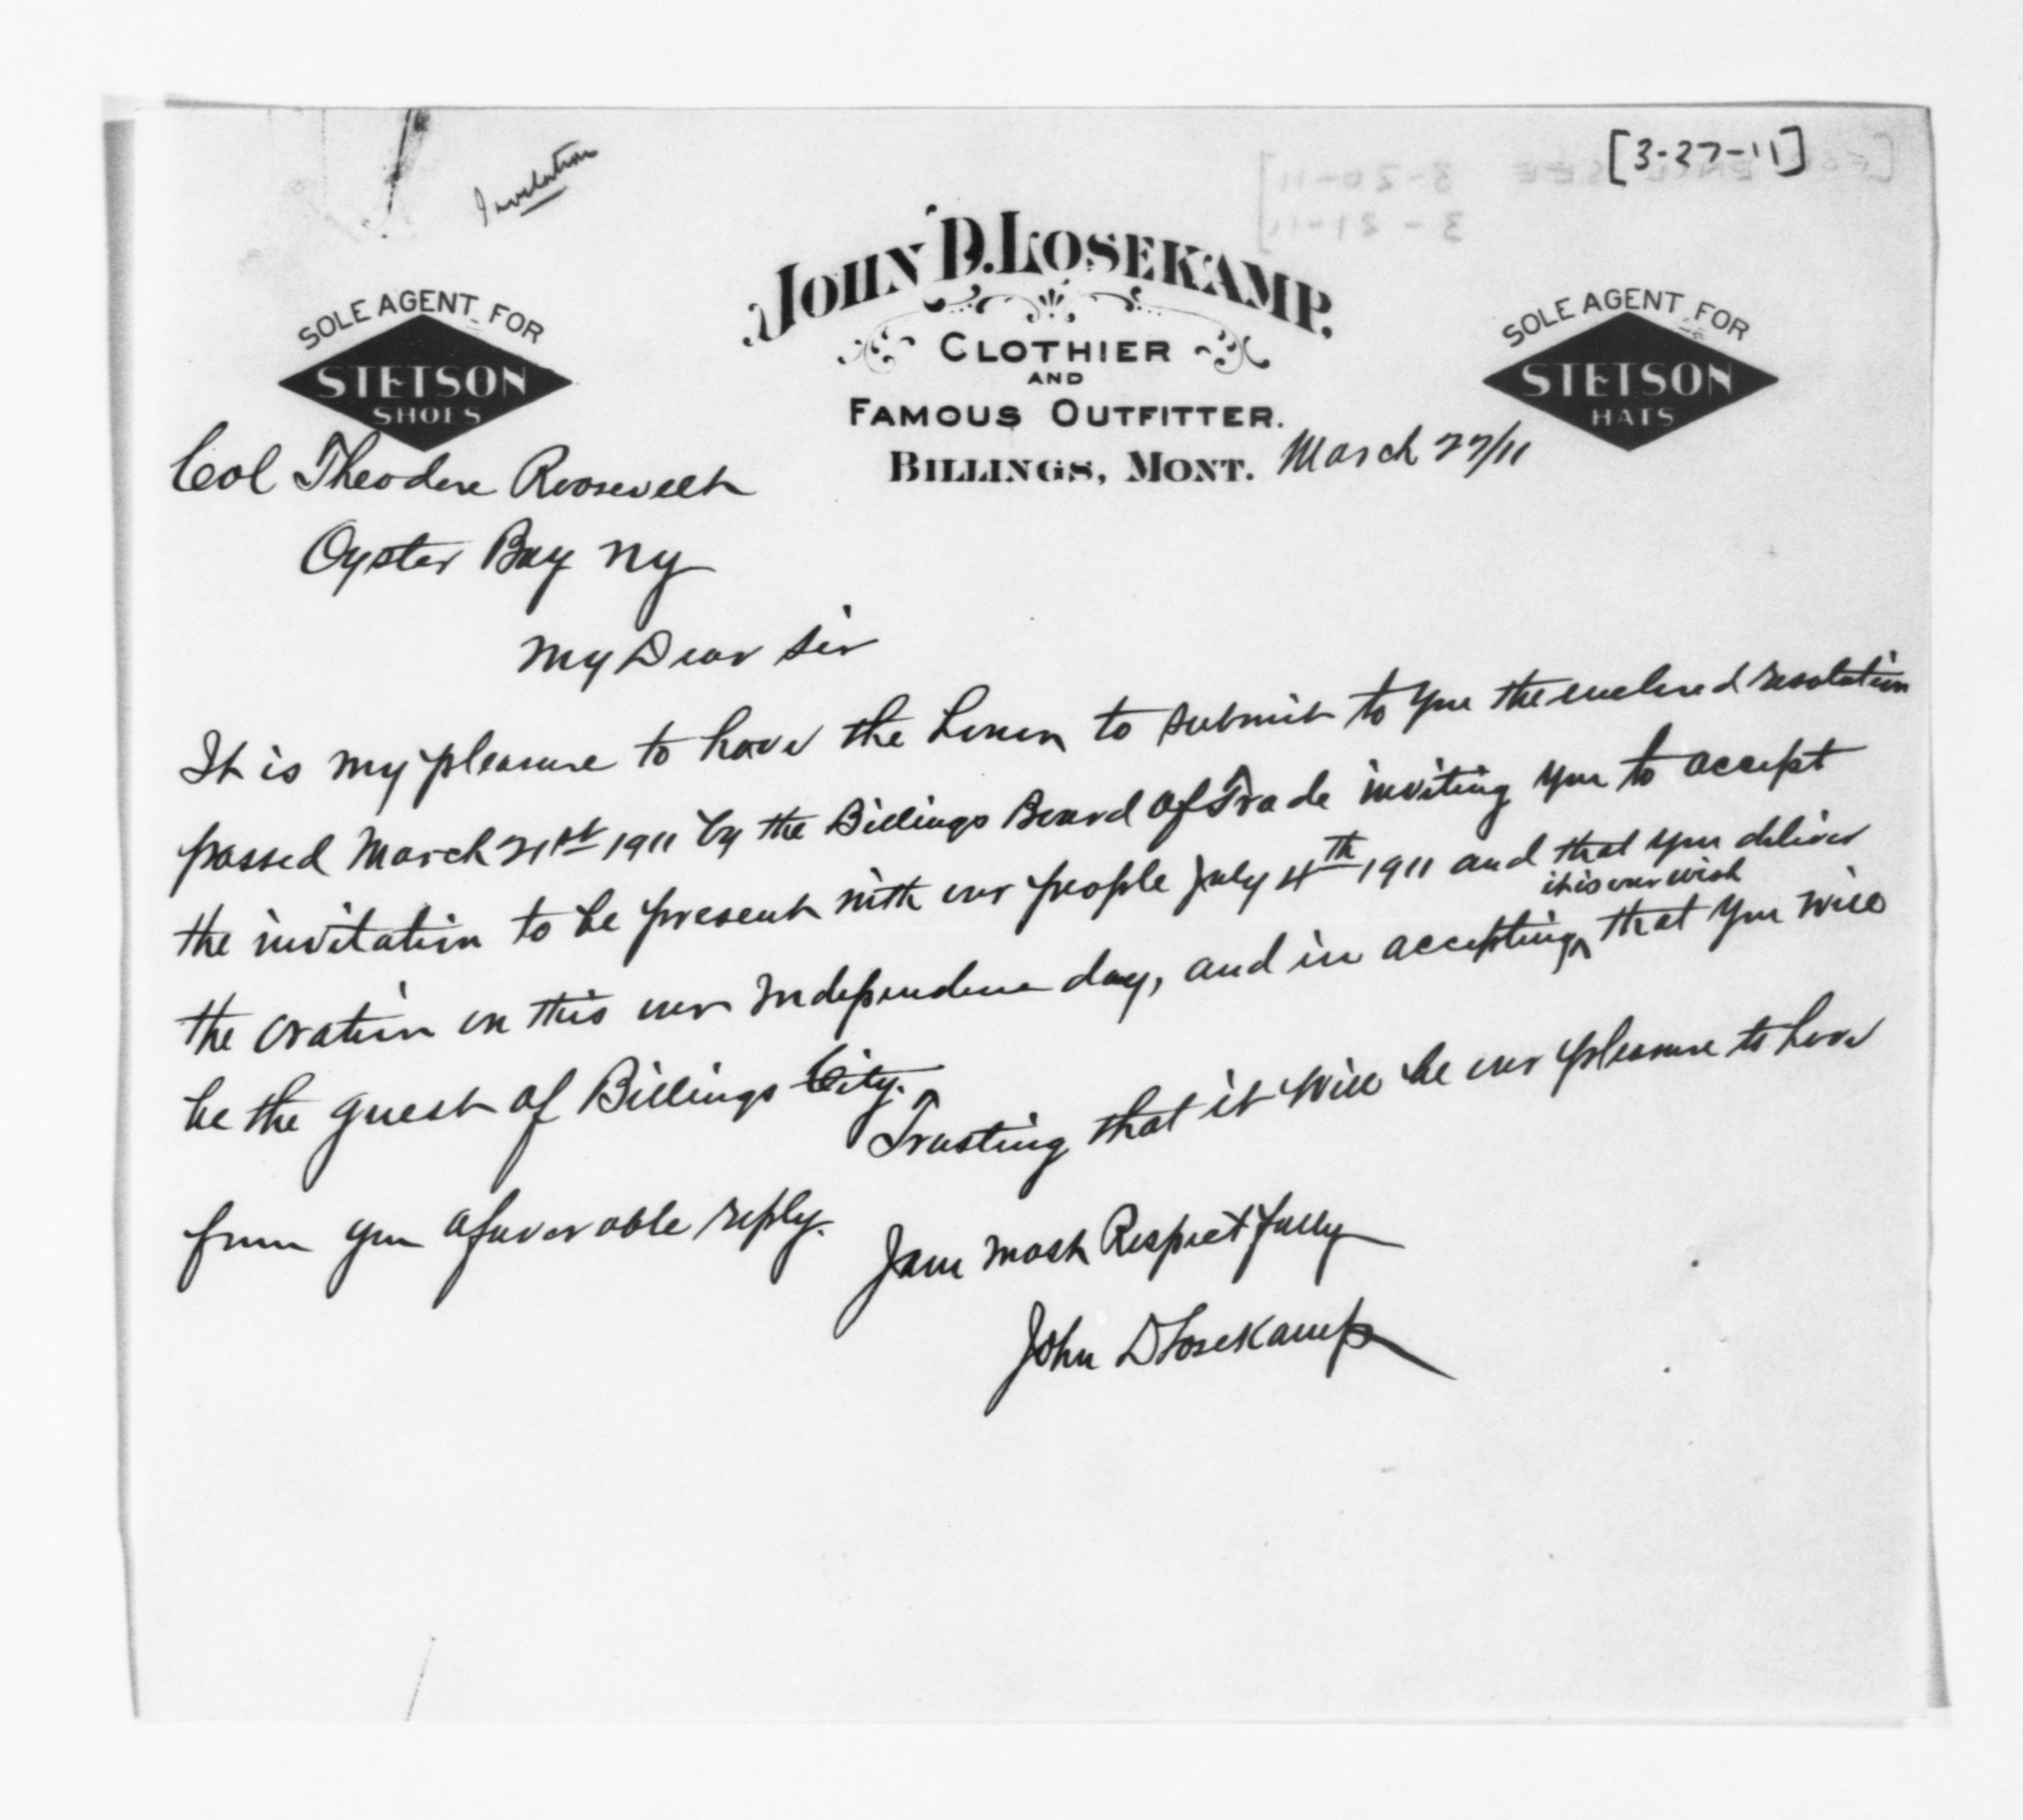 Invitation
[3-27-11]
JOHN D. LOSEKAMP,
CLOTHIER
AND
FAMOUS OUTFITTER.
BILLINGS, MONT.
SOLE AGENT FOR
STETSON
SHOES
SOLE AGENT FOR
STETSON
HATS
March 27/11
Col Theodore Roosevelt
Oyster Bay Ny
My Dear Sir
It is my pleasure to have the honor to submit to you the enclosed resolution
passed March 21st 1911 by the Billings Board of Trade inviting you to accept
the invitation to be present with our people July 4th 1911 and that you deliver
it is our wish
the oration on this our Independence day, and in accepting^ that you will
be the guest of Billings City.
Trusting that it will be our pleasure to have
from you a favorable reply.
I am most Respectfully
John D Losekamp